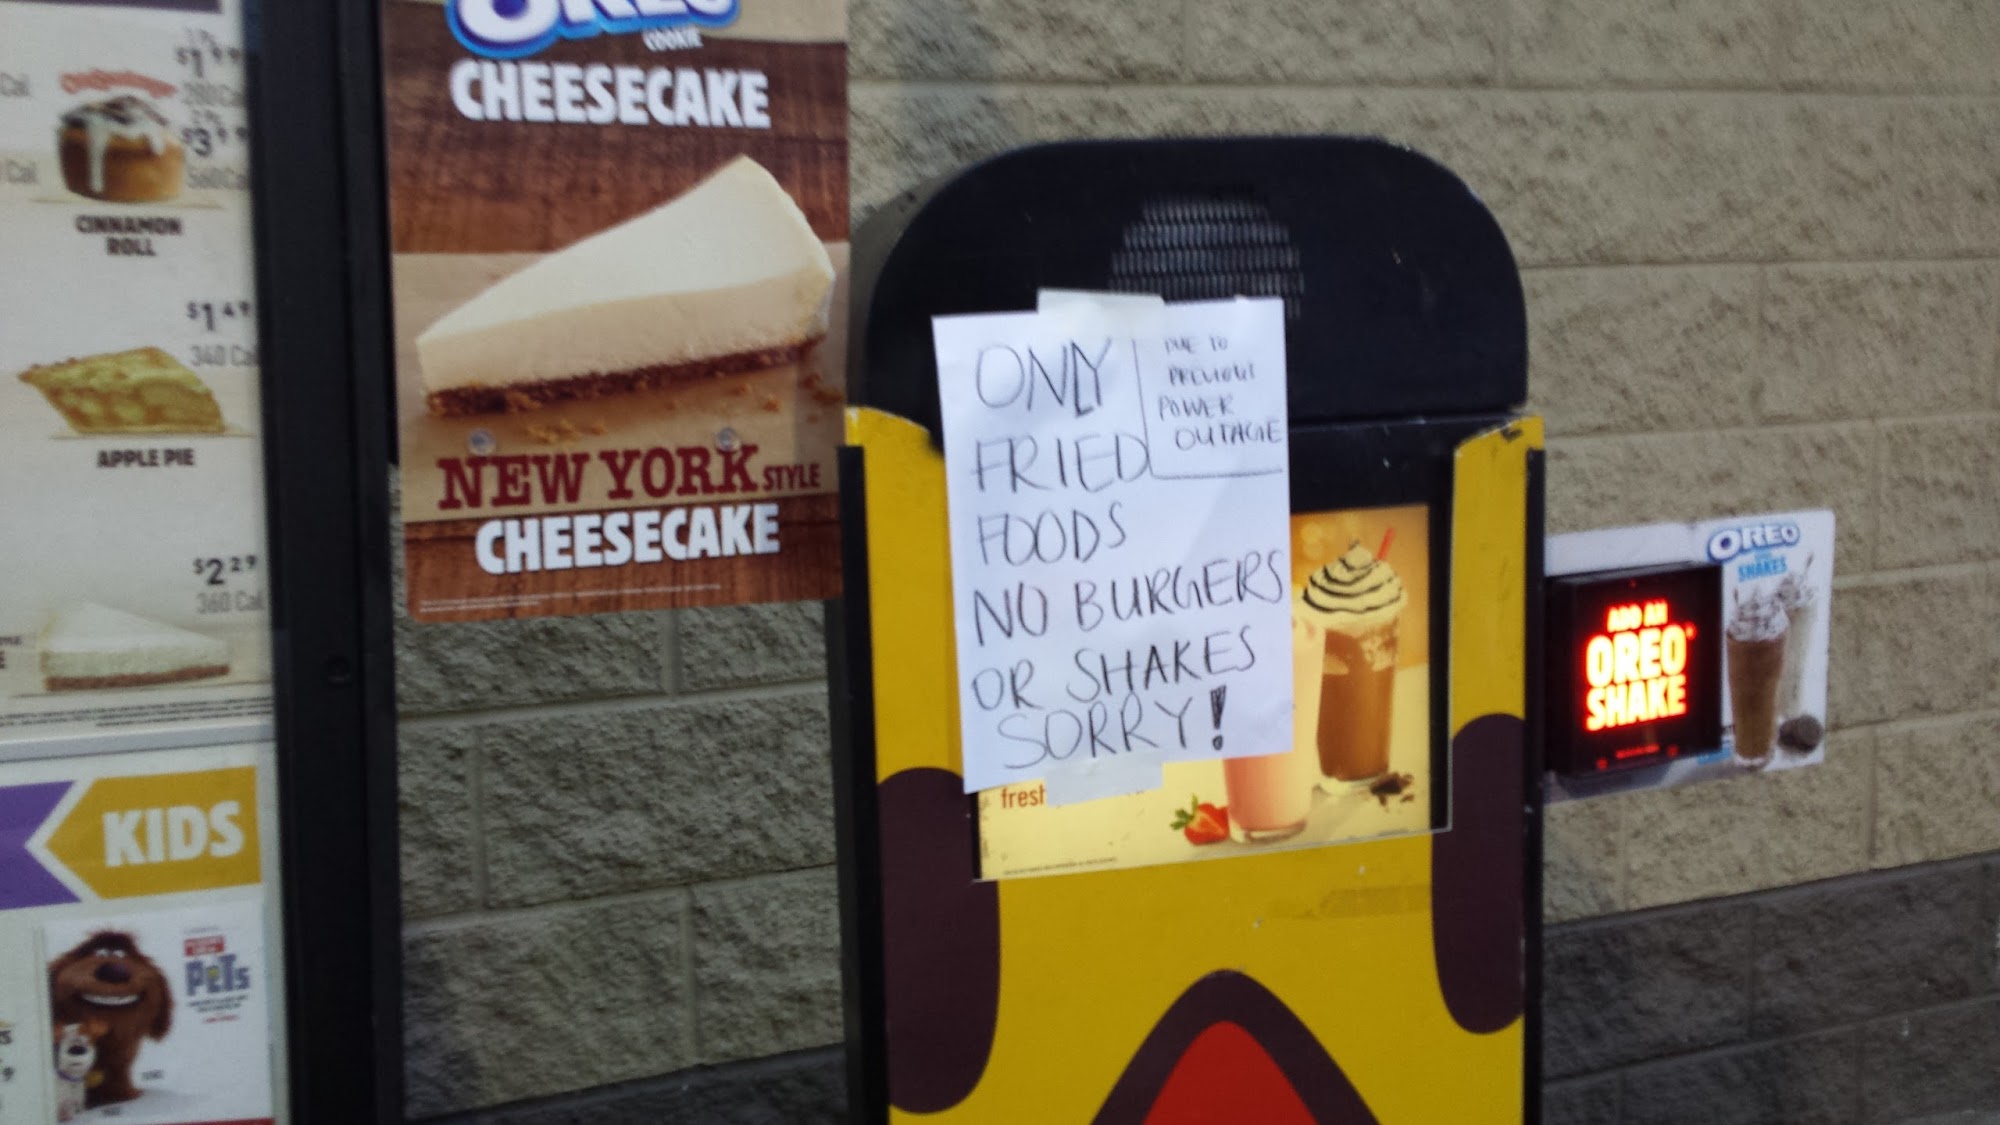 $1 49
Cal
$3 49
Cal
CINNAMON
ROLL
$1 49
340 Cal
APPLE PIE
$2 29
360 Cal
KIDS
PETS
OREO
COOKIE
CHEESECAKE
NEW YORK STYLE
CHEESECAKE
ONLY
FRIED
FOODS
NO BURGERS
OR SHAKES
SORRY!
DUE TO
PREVIOUS
POWER
OUTAGE
fresh
ADD AN
OREO
SHAKE
OREO
SHAKES